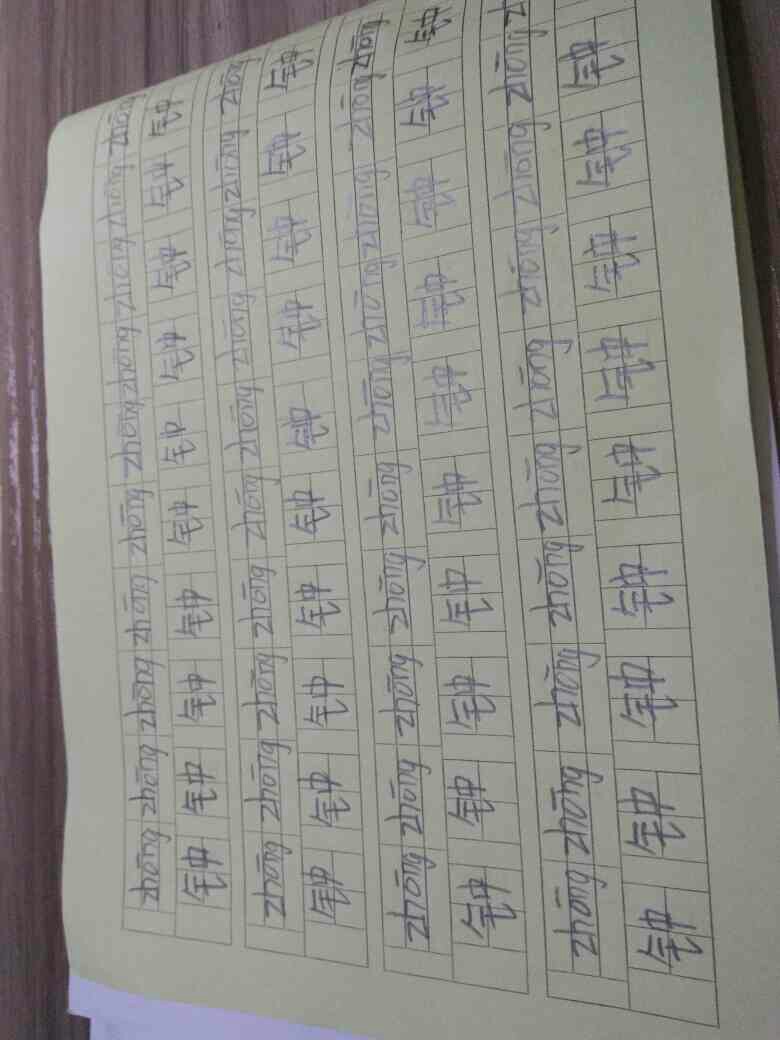 zhōng zhōng zhōng zhōng zhōng zhōng zhōng zhōng zhōng zhōng
钟 钟 钟 钟 钟 钟 钟 钟 钟 钟
zhōng zhōng zhōng zhōng zhōng zhōng zhōng zhōng zhōng zhōng
钟 钟 钟 钟 钟 钟 钟 钟 钟 钟
zhōng zhōng zhōng zhōng zhōng zhōng zhōng zhōng zhōng zhōng
钟 钟 钟 钟 钟 钟 钟 钟 钟 钟
zhōng zhōng zhōng zhōng zhōng zhōng zhōng zhōng zhōng
钟 钟 钟 钟 钟 钟 钟 钟 钟